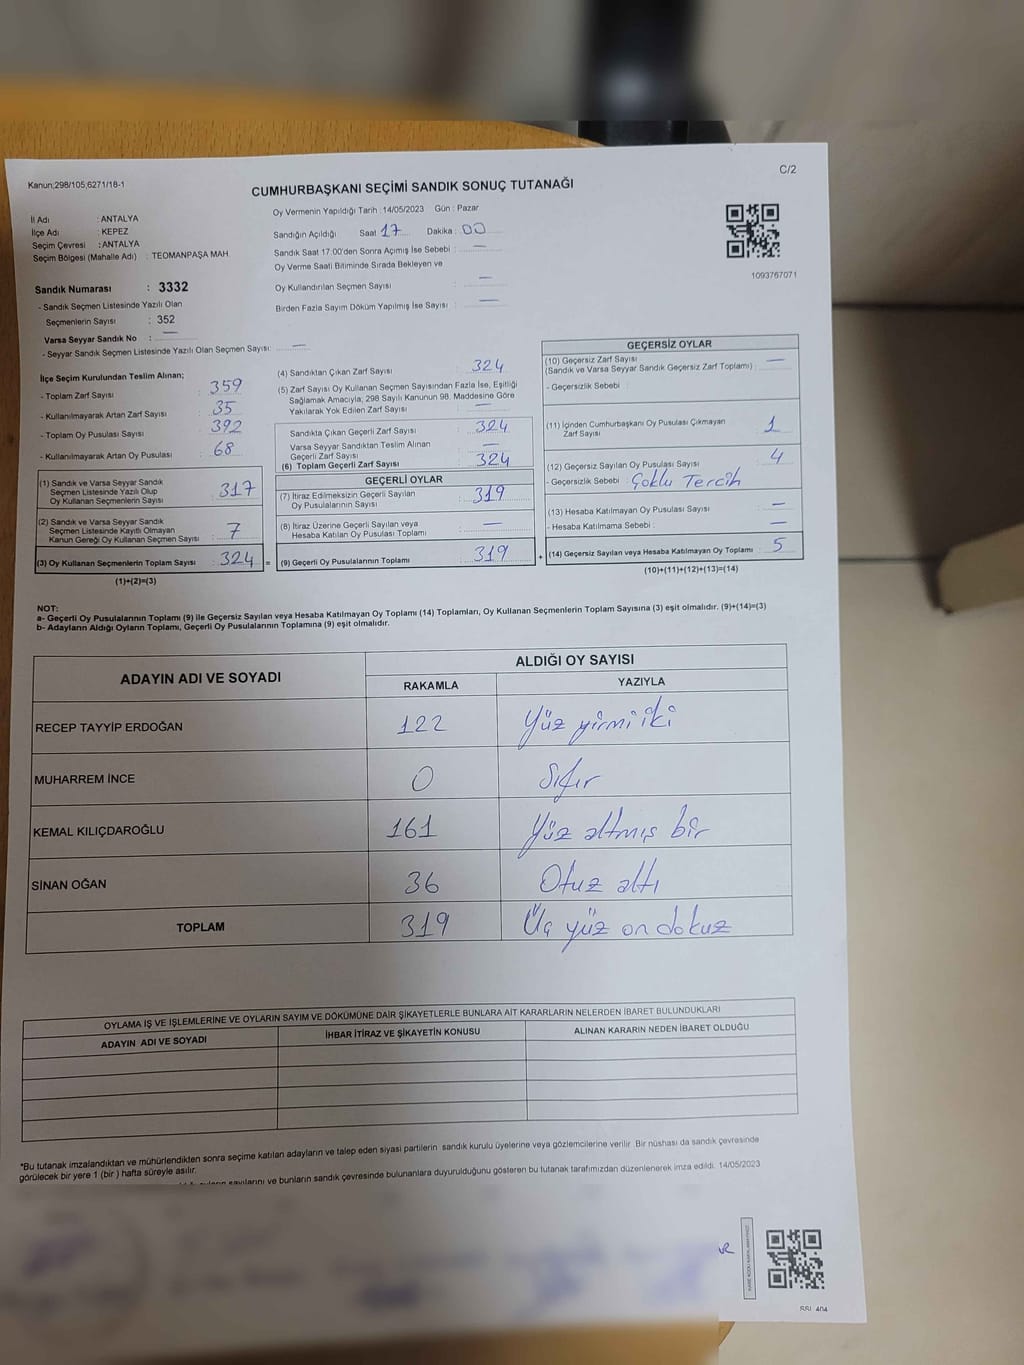 Kanun;298/105,6271/18-1
C/2
CUMHURBAŞKANI SEÇİMİ SANDIK SONUÇ TUTANAĞI
İl Adı : ANTALYA
İlçe Adı : KEPEZ
Seçim Çevresi : ANTALYA
Seçim Bölgesi (Mahalle Adı) : TEOMANPAŞA MAH.
Oy Vermenin Yapıldığı Tarih :14/05/2023 Gün : Pazar
Sandığın Açıldığı Saat 17 Dakika : 00
Sandık Saat 17.00'den Sonra Açımış İse Sebebi : —
Oy Verme Saati Bitiminde Sırada Bekleyen ve
Oy Kullandırılan Seçmen Sayısı : —
Birden Fazla Sayım Döküm Yapılmış İse Sayısı : —
1093767071
Sandık Numarası : 3332
- Sandık Seçmen Listesinde Yazılı Olan
Seçmenlerin Sayısı : 352
Varsa Seyyar Sandık No : —
- Seyyar Sandık Seçmen Listesinde Yazılı Olan Seçmen Sayısı: —
İlçe Seçim Kurulundan Teslim Alınan;
- Toplam Zarf Sayısı : 359
- Kullanılmayarak Artan Zarf Sayısı : 35
- Toplam Oy Pusulası Sayısı : 392
- Kullanılmayarak Artan Oy Pusulası : 68
(1) Sandık ve Varsa Seyyar Sandık
Seçmen Listesinde Yazılı Olup
Oy Kullanan Seçmenlerin Sayısı : 317
(2) Sandık ve Varsa Seyyar Sandık
Seçmen Listesinde Kayıtlı Olmayan
Kanun Gereği Oy Kullanan Seçmen Sayısı : 7
(3) Oy Kullanan Seçmenlerin Toplam Sayısı : 324 =
(1)+(2)=(3)
(4) Sandıktan Çıkan Zarf Sayısı : 324
(5) Zarf Sayısı Oy Kullanan Seçmen Sayısından Fazla İse, Eşitliği
Sağlamak Amacıyla; 298 Sayılı Kanunun 98. Maddesine Göre
Yakılarak Yok Edilen Zarf Sayısı : —
Sandıkta Çıkan Geçerli Zarf Sayısı : 324
Varsa Seyyar Sandıktan Teslim Alınan
Geçerli Zarf Sayısı : —
(6) Toplam Geçerli Zarf Sayısı : 324
GEÇERLİ OYLAR
(7) İtiraz Edilmeksizin Geçerli Sayılan
Oy Pusulalarının Sayısı : 319
(8) İtiraz Üzerine Geçerli Sayılan veya
Hesaba Katılan Oy Pusulası Toplamı : —
(9) Geçerli Oy Pusulalarının Toplamı : 319 +
GEÇERSİZ OYLAR
(10) Geçersiz Zarf Sayısı : —
(Sandık ve Varsa Seyyar Sandık Geçersiz Zarf Toplamı)
- Geçersizlik Sebebi :
(11) İçinden Cumhurbaşkanı Oy Pusulası Çıkmayan
Zarf Sayısı : 1
(12) Geçersiz Sayılan Oy Pusulası Sayısı : 4
- Geçersizlik Sebebi : Çoklu Tercih
(13) Hesaba Katılmayan Oy Pusulası Sayısı : —
- Hesaba Katılmama Sebebi : —
(14) Geçersiz Sayılan veya Hesaba Katılmayan Oy Toplamı : 5
(10)+(11)+(12)+(13)=(14)
NOT:
a- Geçerli Oy Pusulalarının Toplamı (9) ile Geçersiz Sayılan veya Hesaba Katılmayan Oy Toplamı (14) Toplamları, Oy Kullanan Seçmenlerin Toplam Sayısına (3) eşit olmalıdır. (9)+(14)=(3)
b- Adayların Aldığı Oyların Toplamı, Geçerli Oy Pusulalarının Toplamına (9) eşit olmalıdır.
ADAYIN ADI VE SOYADI
ALDIĞI OY SAYISI
RAKAMLA YAZIYLA
RECEP TAYYİP ERDOĞAN 122 Yüz yirmi iki
MUHARREM İNCE 0 Sıfır
KEMAL KILIÇDAROĞLU 161 Yüz altmış bir
SİNAN OĞAN 36 Otuz altı
TOPLAM 319 Üç yüz on dokuz
OYLAMA İŞ VE İŞLEMLERİNE VE OYLARIN SAYIM VE DÖKÜMÜNE DAİR ŞİKAYETLERLE BUNLARA AİT KARARLARIN NELERDEN İBARET BULUNDUKLARI
ADAYIN ADI VE SOYADI İHBAR İTİRAZ VE ŞİKAYETİN KONUSU ALINAN KARARIN NEDEN İBARET OLDUĞU
*Bu tutanak imzalandıktan ve mühürlendikten sonra seçime katılan adayların ve talep eden siyasi partilerin sandık kurulu üyelerine veya gözlemcilerine verilir. Bir nüshası da sandık çevresinde
görülecek bir yere 1 (bir ) hafta süreyle asılır.
sayılarını ve bunların sandık çevresinde bulunanlara duyurulduğunu gösteren bu tutanak tarafımızdan düzenlenerek imza edildi. 14/05/2023